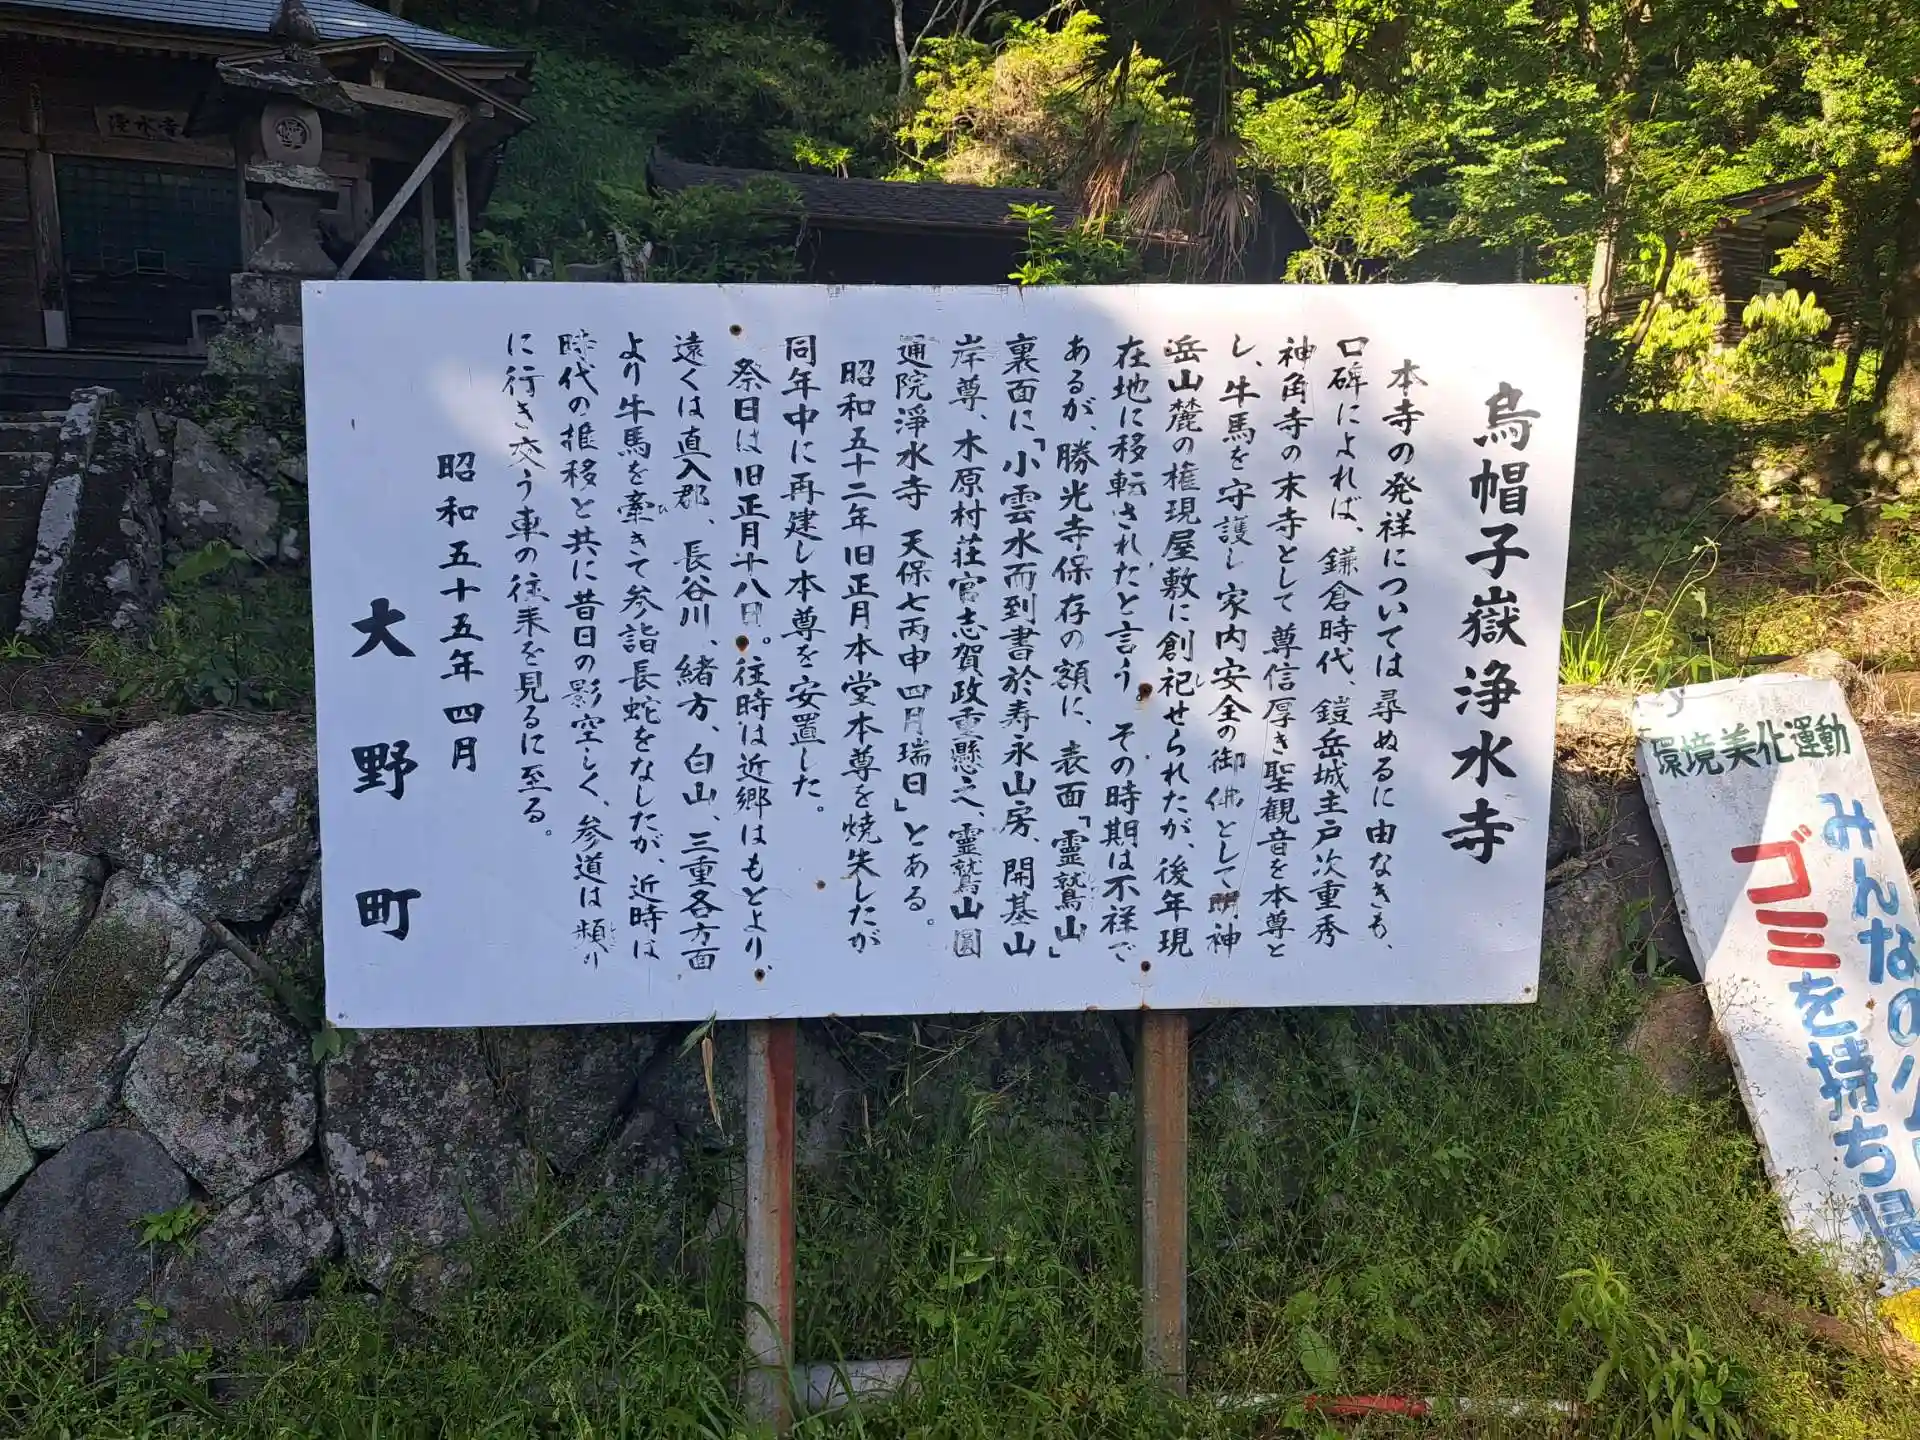 烏帽子嶽浄水寺
本寺の発祥については尋ぬるに由なきも、
口碑によれば、鎌倉時代、鎧岳城主戸次重秀
神角寺の末寺として尊信厚き聖観音を本尊と
し、牛馬を守護し家内安全の御佛として明神
岳山麓の権現屋敷に創祀せられたが、後年現
在地に移転されたと言う。その時期は不祥で
あるが、勝光寺保存の額に、表面「霊鷲山」
裏面に「小雲水而到書於寿永山房、開基山
岸尊、木原村荘官志賀政重懸之、霊鷲山圓
通院浄水寺 天保七丙申四月瑞日」とある。
昭和五十二年旧正月本堂本尊を焼失したが
同年中に再建し本尊を安置した。
祭日は旧正月十八日。往時は近郷はもとより、
遠くは直入郡、長谷川、緒方、白山、三重各方面
より牛馬を牽きて参詣長蛇をなしたが、近時は
時代の推移と共に昔日の影空しく、参道は頻り
に行き交う車の往来を見るに至る。
昭和五十五年四月
大野町
浄水寺
環境美化運動
みんなの
ゴミを持ち帰